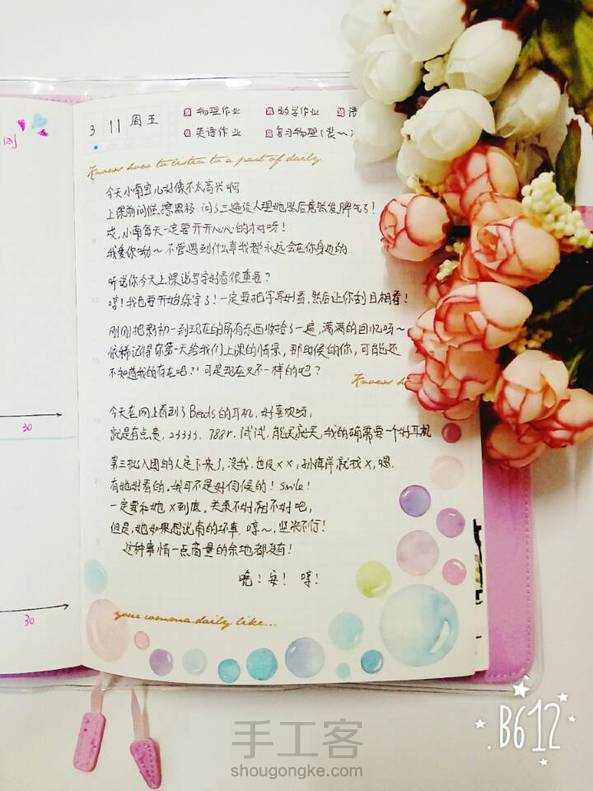 3 11 周五
物理作业 数学作业
英语作业 复习物理
to listen to a part of daily
今天小南宝儿好像不太高兴啊
上课前问候
哎，小南每天一定要开开心心的才好呀！
我爱你呦～ 不管遇到什么事我都永远会在你身边的
听说你今天上课说写字好看很重要？
哼！我也要开始练字了！一定要把字写好看，然后让你刮目相看！
刚刚把刚初一到现在的所有东西收拾了一遍，满满的回忆呀～
依稀记得你第一天给我们上课的情景，那时候的你，可能还
不知道我的存在吧？！可是现在又不一样的吧？
今天在网上看到了Beats的耳机，好喜欢呀，
就是有点贵，23333，788r，试试，能买就买，我的确需要一个好耳机
第三批入团的人定下来了，没我，也没××，
有她好看的，我可不是好伺候的！smile！
一定要和她×到底，
但是，她如果想说南的坏事，哼～，坚决不行！
这种事情一点商量的余地都没有！
晚！安！哼！
daily like...
30
30
B612
手工客
shougongke.com